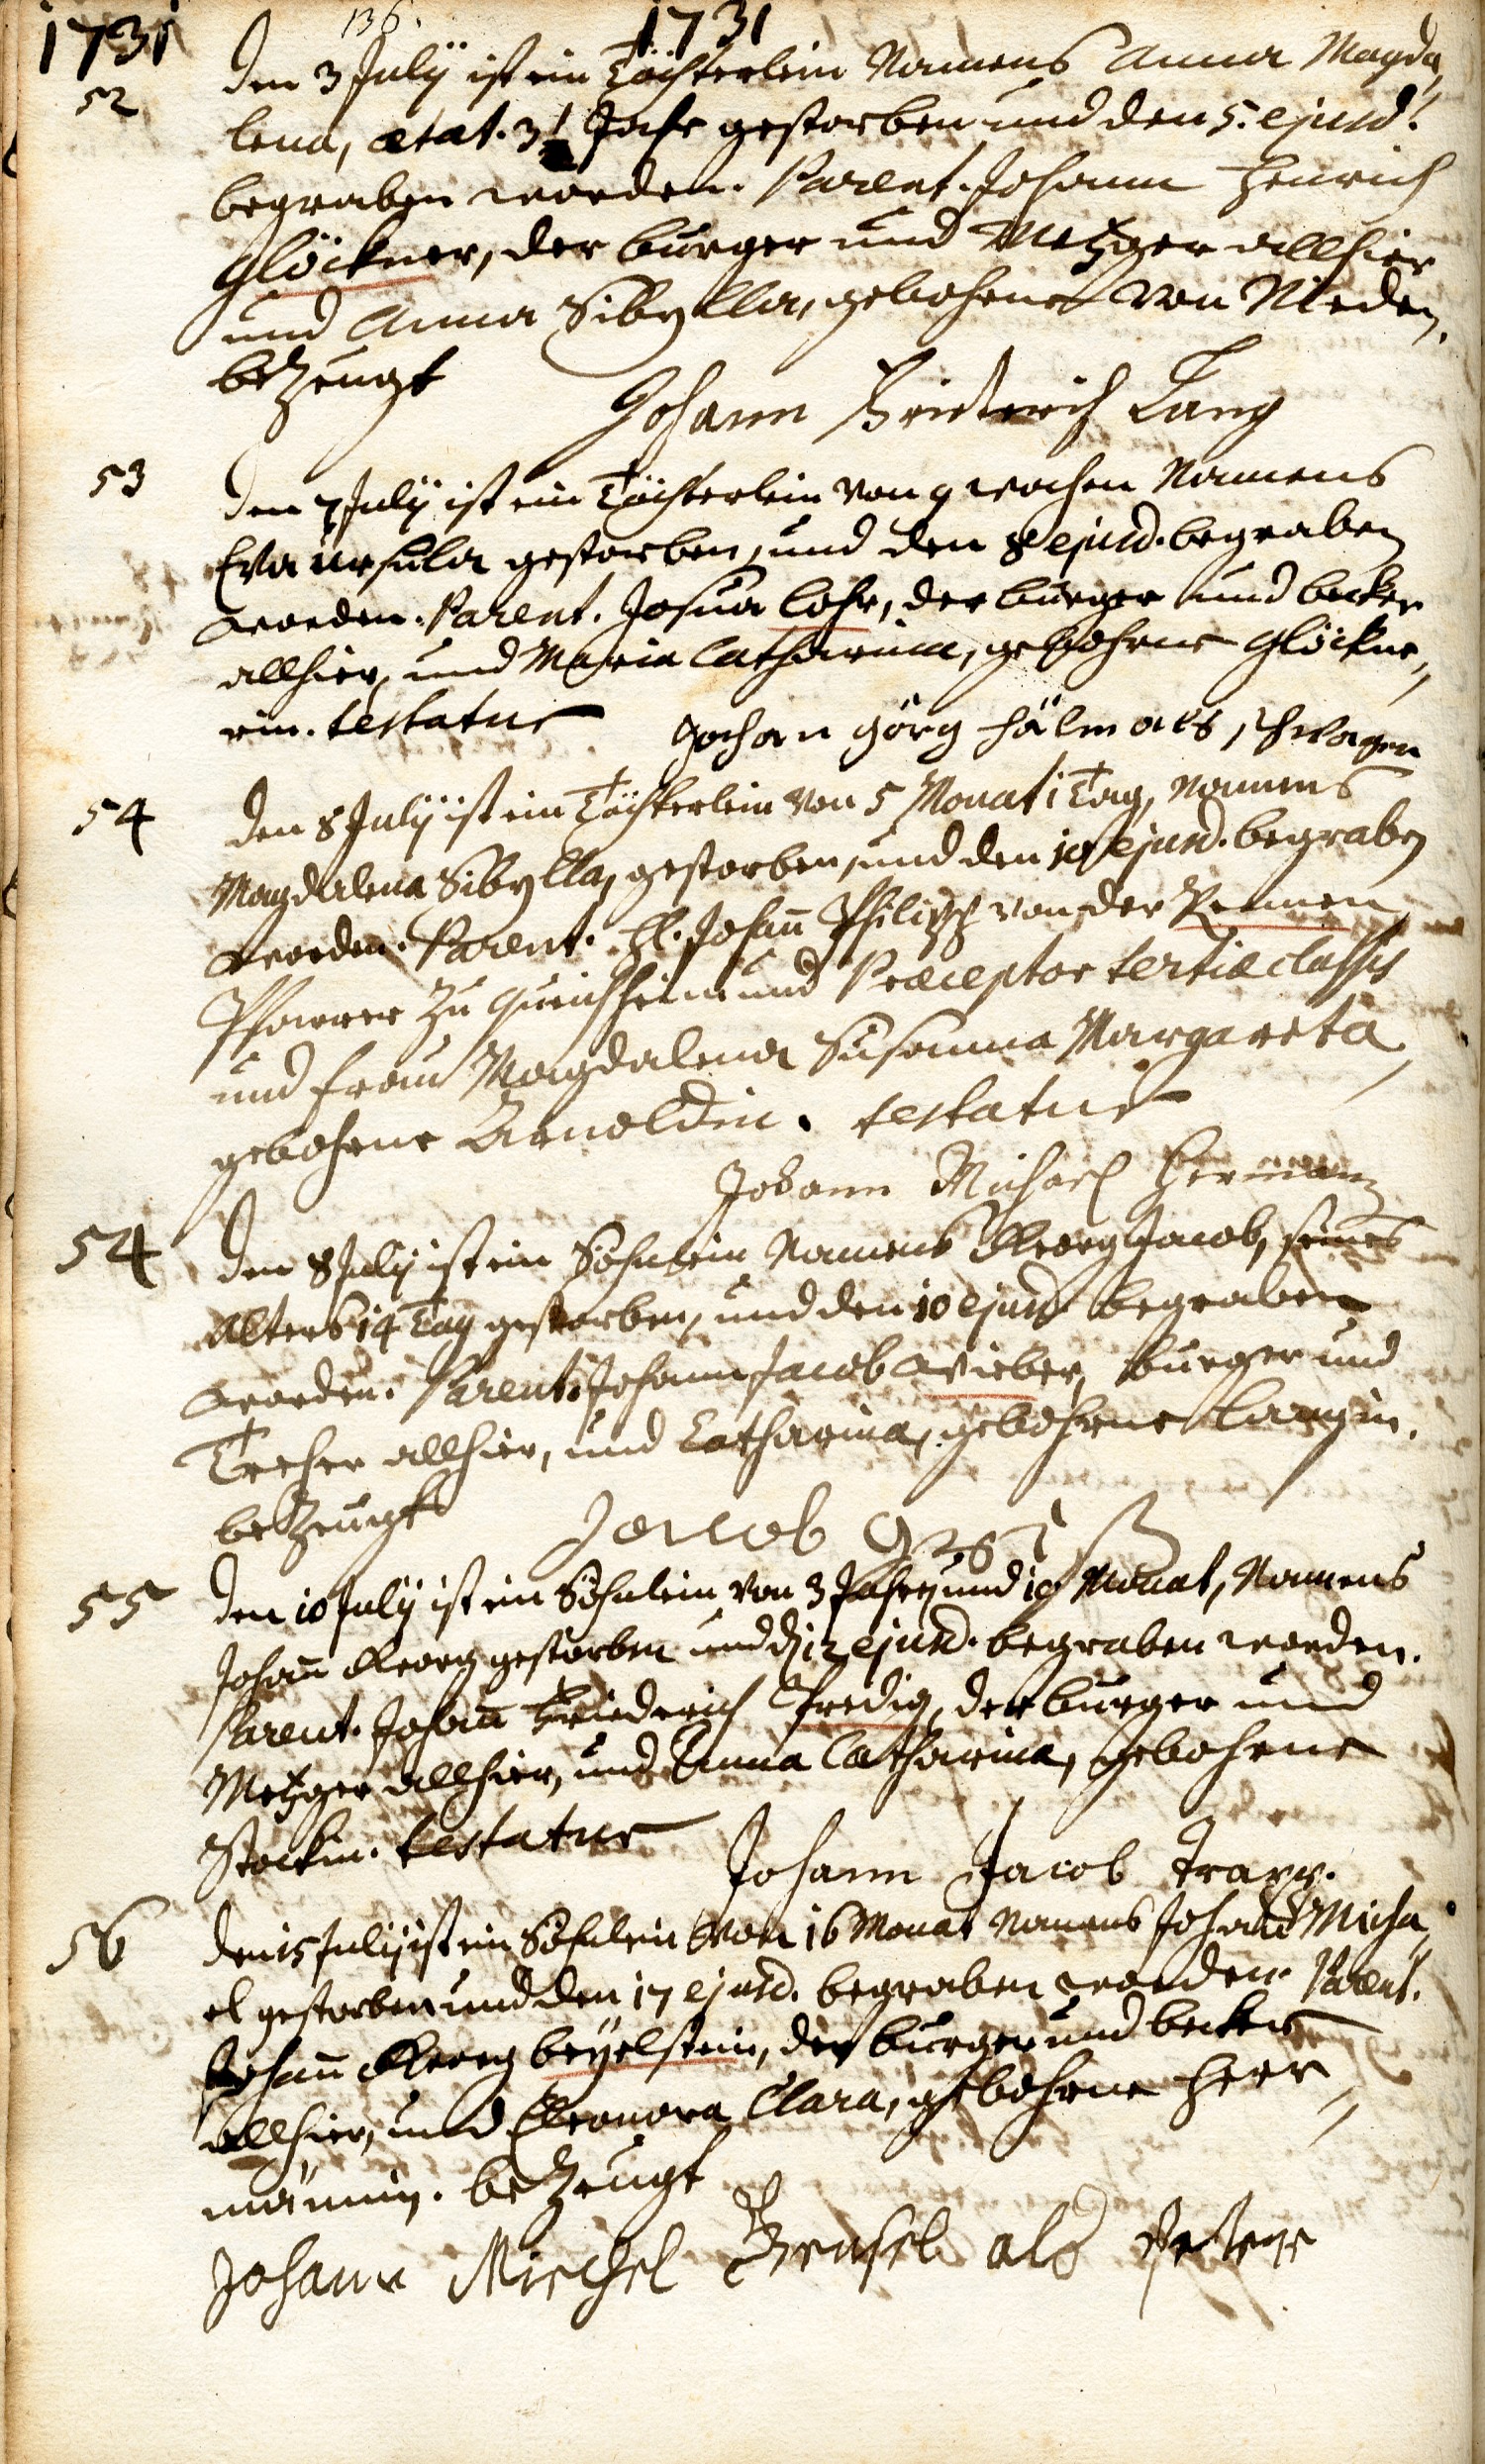 1731 136. 1731
52 den 3 July ist ein Töchterlein Namens Anna Magda,
lena, ætat. 3 Jahr gestorben und den 5. ejusd.
begraben worden. Parent. Johann Henrich
Glöckner, der burger und Metzger allhier
und Anna Sibylla, gebohrne von Nieden.
bezeugt
Johann Friderich Lang
53 den 7 July ist ein Töchterlein von 9 wochen Namens
Eva Ursula gestorben, und den 8 ejusd. begraben
worden. Parent. Josua Lohr, der burger und becker
allhier, und Maria Catharina, gebohrne Glöckne,,
rin. testatur Johan Görg als schwager
54 den 8 July ist ein Töchterlein von 5 Monat 1 Tag, Namens
Magdalena Sibylla, gestorben, und den 10 ejusd. begraben
worden. Parent. H. Johann Philipp von der
Pfarrer zu Queichheim und Præceptor tertiæ classis
und Frau Magdalena Susanna Margareta
gebohrne Arnoldin. testatur
Johann Michael Hermann
54 den 8 July ist ein Söhnlein Namens Georg Jacob, seines
Alters 14 Tag gestorben, und den 10 ejusd. begraben
worden. Parent. Johann Jacob Wieber, burger und
allhier, und Catharina, gebohrne Langin.
bezeugt Jacob
55 den 10 July ist ein Söhnlein von 3 Jahren und 10 Monat, Namens
Johann Georg gestorben und d. 12 ejusd. begraben worden.
Parent. Johann Friederich der burger und
Metzger allhier, und Anna Catharina, gebohrne
Stöckin. testatur
Johann Jacob Trapp.
56 den 15 July ist ein Söhnlein von 16 Monat Namens Johann Micha,,
el gestorben und den 17 ejusd. begraben worden. Parent.
Johann Georg beyelstein, der burger und becker
allhier, und Eleonora Clara, gebohrne Herr,,
männin. bezeugt
Johann Michel als